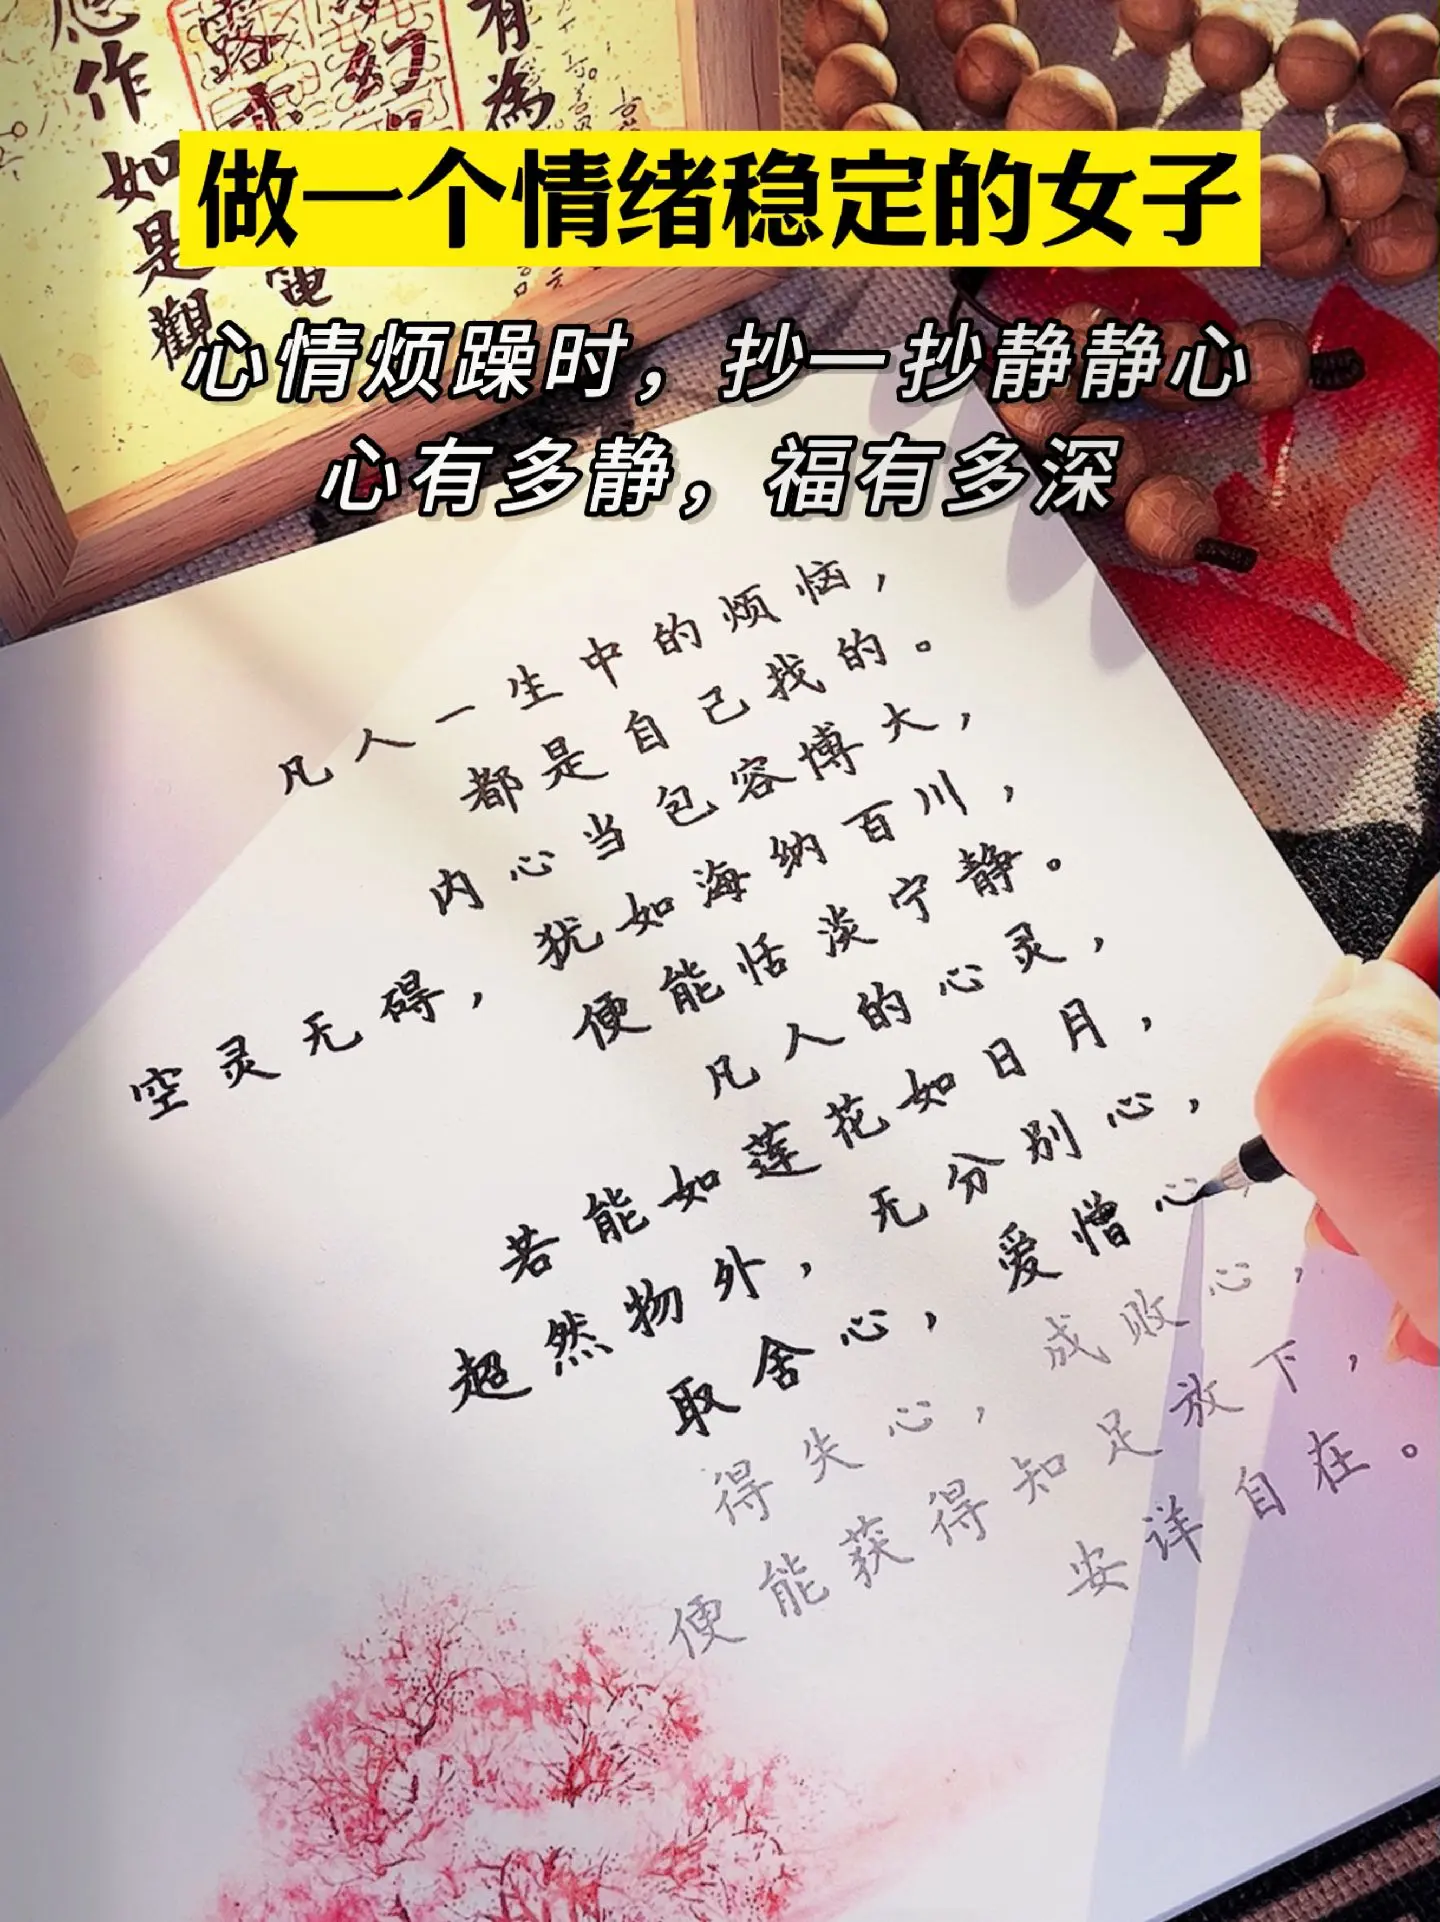 做一个情绪稳定的女子
心情烦躁时，抄一抄静静心
心有多静，福有多深
有為
露
電
應作
如是觀
凡人一生中的烦恼，
都是自己找的。
内心当包容博大，
空灵无碍，犹如海纳百川，
便能恬淡宁静。
凡人的心灵，
若能如莲花如日月，
超然物外，无分别心，
取舍心，爱憎心，
得失心，成败心，
便能获得知足放下，
安详自在。